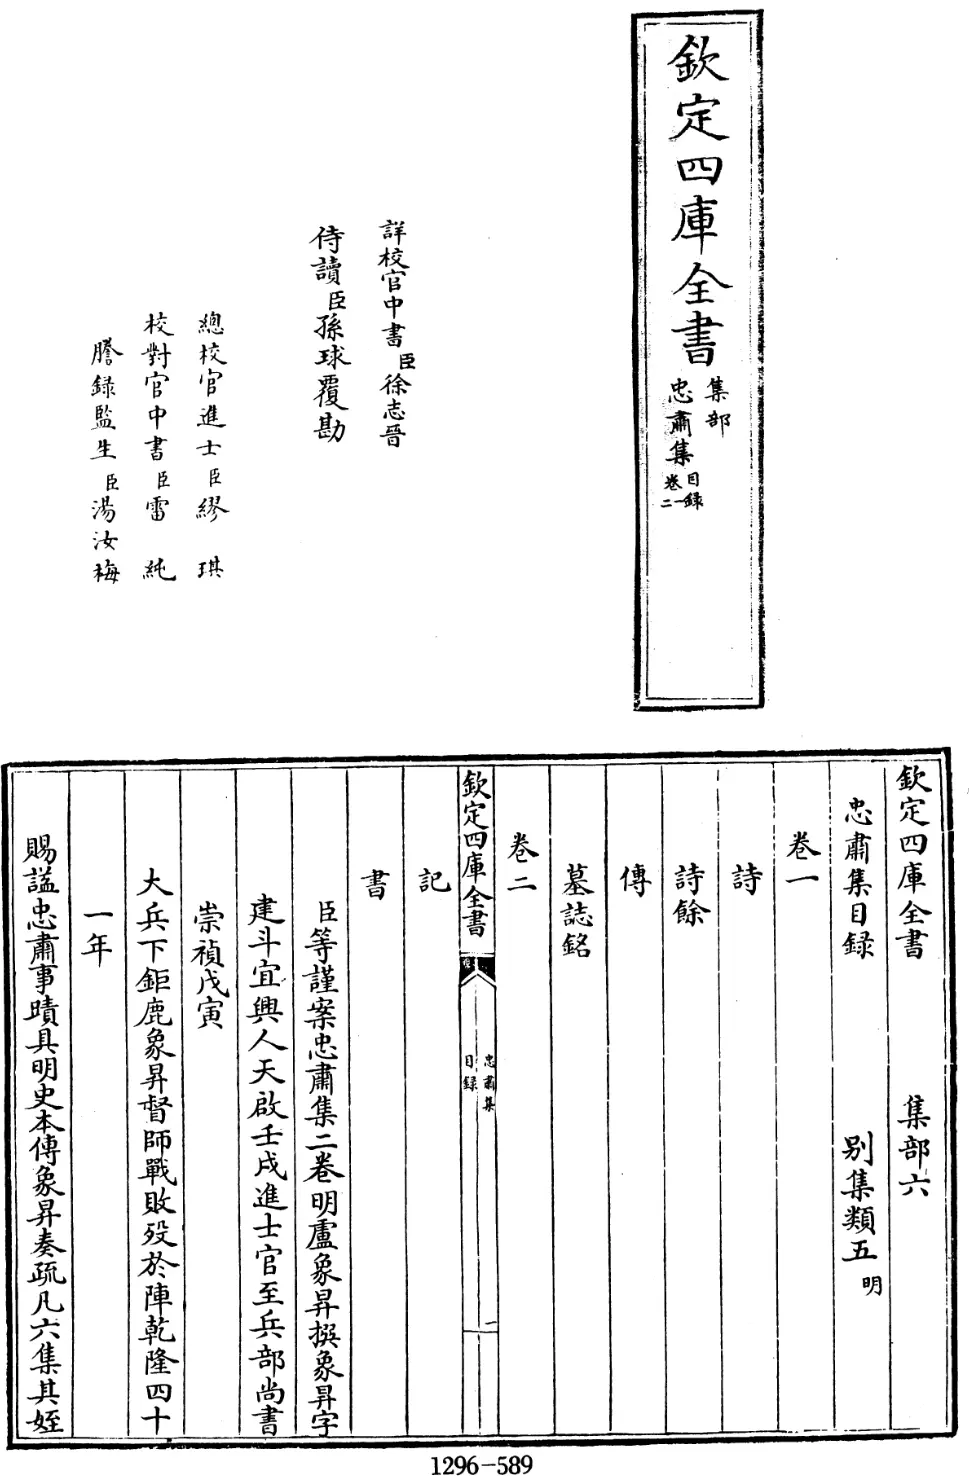 欽定四庫全書
集部
忠肅集
目録
卷一
二
詳校官中書臣徐志晉
侍讀臣孫球覆勘
總校官進士臣繆琪
校對官中書臣雷純
謄錄監生臣湯汝梅
欽定四庫全書 集部六
忠肅集目録 别集類五 明
卷一
詩
詩餘
傳
墓誌銘
卷二
欽定四庫全書
忠肅集
目録
一
記
書
臣等謹案忠肅集二卷明盧象昇撰象昇字
建斗宜興人天啟壬戌進士官至兵部尚書
崇禎戊寅
大兵下鉅鹿象昇督師戰敗歿於陣乾隆四十
一年
賜諡忠肅事蹟具明史本傳象昇奏疏凡六集其姪
1296-589